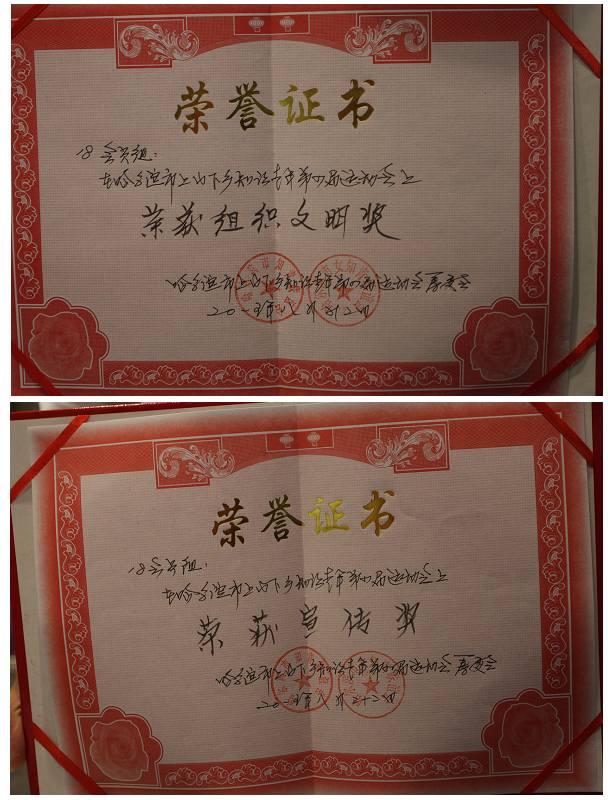 荣誉证书
18会员组：
在哈尔滨市上山下乡知识青年第四届运动会上
荣获组织文明奖
哈尔滨市上山下乡知识青年第四届运动会筹委会
荣誉证书
18会员组：
在哈尔滨市上山下乡知识青年第四届运动会上
荣获宣传奖
哈尔滨市上山下乡知识青年第四届运动会筹委会